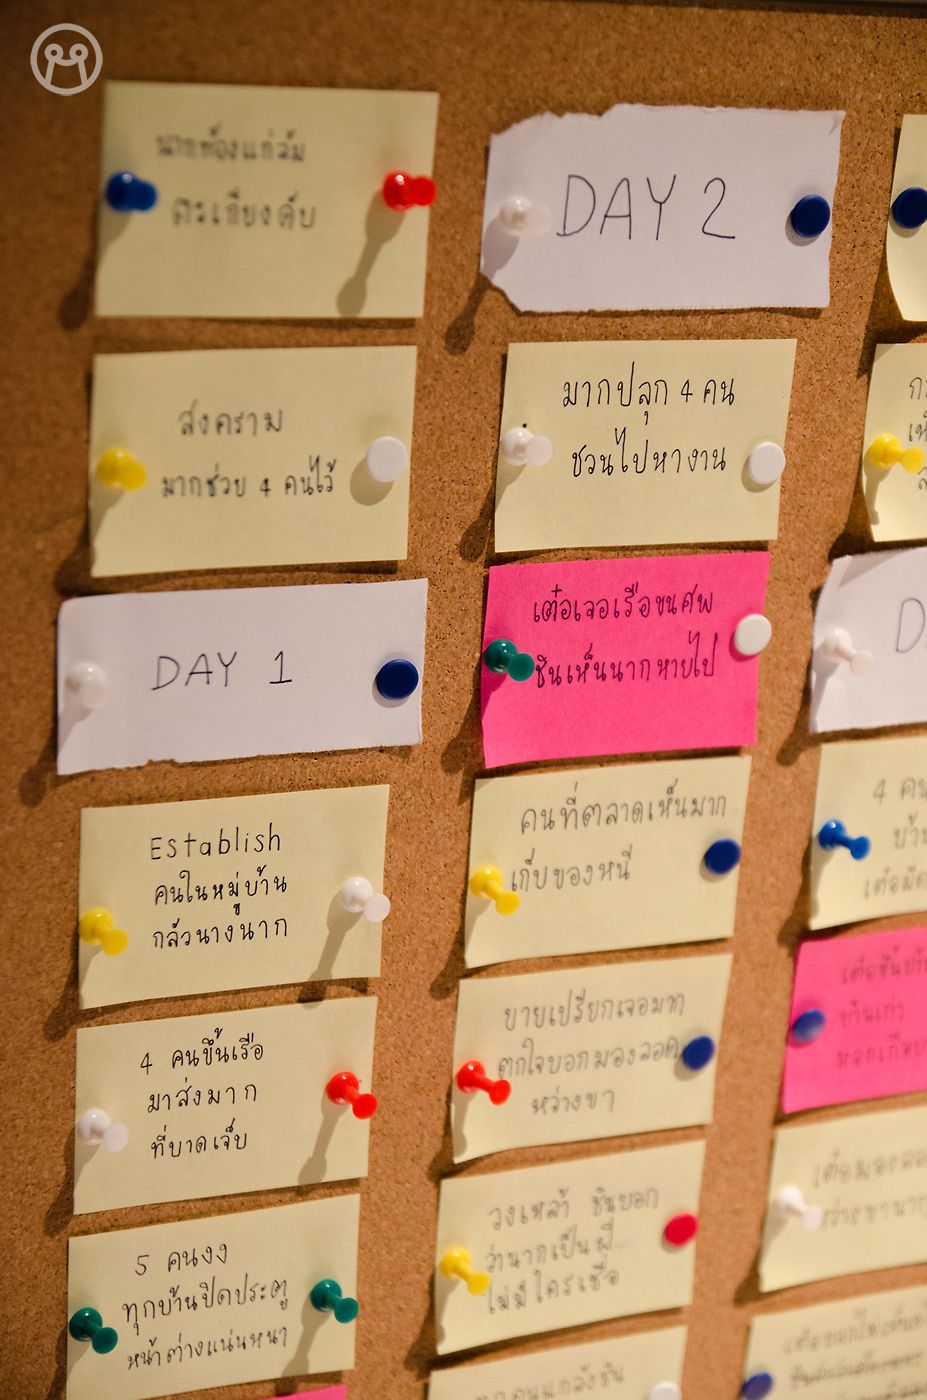 นากท้องแก่ล้ม
ตะเกียงดับ
สงคราม
มากช่วย 4 คนไว้
DAY 1
Establish
คนในหมู่บ้าน
กลัวนางนาก
4 คนขึ้นเรือ
มาส่งมาก
ที่บาดเจ็บ
5 คนงง
ทุกบ้านปิดประตู
หน้าต่างแน่นหนา
DAY 2
มากปลุก 4 คน
ชวนไปหางาน
เต๋อเจอเรือขนศพ
ชินเห็นนากหายไป
คนที่ตลาดเห็นมาก
เก็บของหนี
ยายเปรียกเจอมาก
ตกใจบอกมองลอด
หว่างขา
วงเหล้า ชินบอก
ว่านากเป็นผี
ไม่มีใครเชื่อ
ทุกคนแกล้งชิน
D
4 คน
บ้าน
บ้านเก่า
เต๋อมองลอด
หว่างขานาก